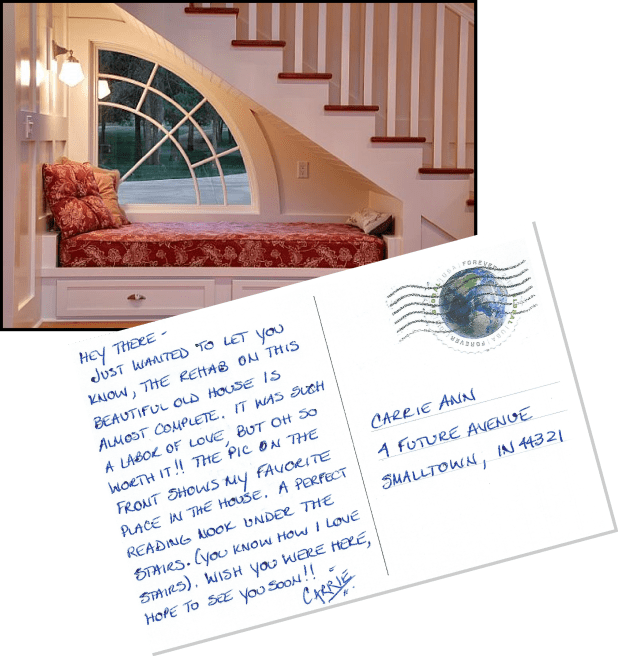 HEY THERE -
JUST WANTED TO LET YOU
KNOW, THE REHAB ON THIS
BEAUTIFUL OLD HOUSE IS
ALMOST COMPLETE. IT WAS SUCH
A LABOR OF LOVE, BUT OH SO
WORTH IT!! THE PIC ON THE
FRONT SHOWS MY FAVORITE
PLACE IN THE HOUSE. A PERFECT
READING NOOK UNDER THE
STAIRS. (YOU KNOW HOW I LOVE
STAIRS). WISH YOU WERE HERE,
HOPE TO SEE YOU SOON!!
CARRIE
CARRIE ANN
4 FUTURE AVENUE
SMALLTOWN, IN 44321
FOREVER
FOREVER